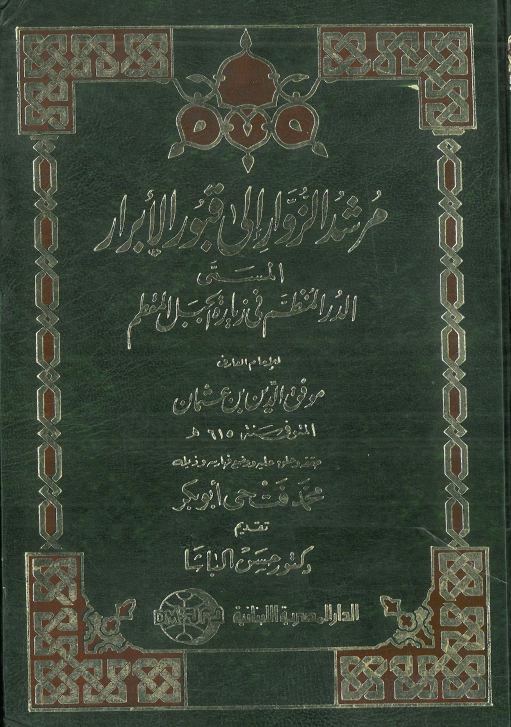 مُرشدُ الزُّوَّار إلى قبُور الأبرار
المسمّى
الدر المُنظّم في زيارة الجبل المقطم
للإمام العارف
موفق الدّين بن عثمان
المتوفى سنة ٦١٥ هـ
حققه وعلق عليه ووضع فهارسه وذيله
محمّد فتحي أبو بكر
تقديم
دكتور حسن الباشا
الدار المصرية اللبنانية